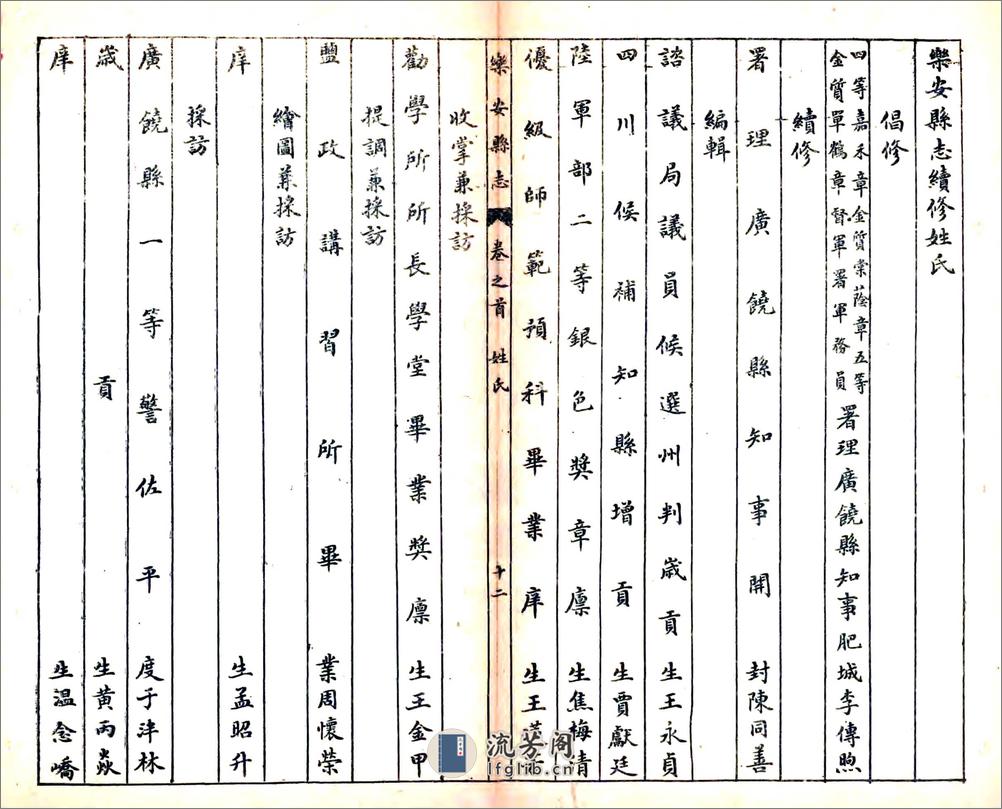 樂安縣志續修姓氏
倡修
四等嘉禾章金質棠蔭章五等
金質單鶴章督軍署軍務員
署理廣饒縣知事肥城李傳煦
續修
署理廣饒縣知事開封陳同善
編輯
諮議局議員候選州判歲貢生王永貞
四川候補知縣增貢生賈獻廷
陸軍部二等銀色獎章廩生焦梅清
優級師範預科畢業庠生王
樂安縣志 卷之首 姓氏 十二
收掌兼採訪
勸學所所長學堂畢業獎廩生王金甲
提調兼採訪
鹽政講習所畢業周懷榮
繪圖兼採訪
庠生孟昭升
採訪
廣饒縣一等警佐平度于泮林
歲貢生黃丙焱
庠生溫念嶠
流芳阁
lfglib.cn